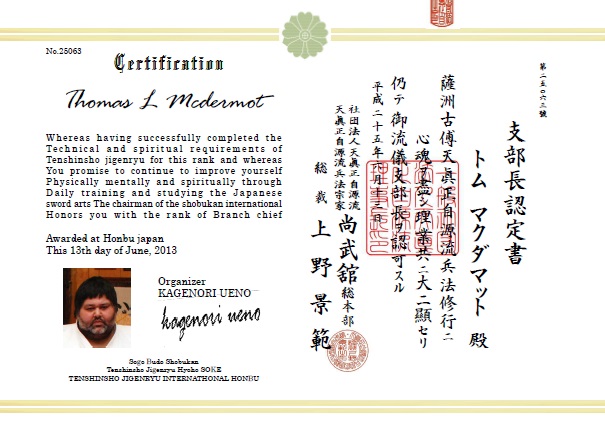 No.25063
Certification
Thomas L Mcdermot
Whereas having successfully completed the
Technical and spiritual requirements of
Tenshinsho jigenryu for this rank and whereas
You promise to continue to improve yourself
Physically mentally and spiritually through
Daily training and studying the Japanese
sword arts The chairman of the shobukan international
Honors you with the rank of Branch chief
Awarded at Honbu japan
This 13th day of June, 2013
Organizer
KAGENORI UENO
kagenori ueno
Sogo Budo Shobukan
Tenshinsho Jigenryu Hyoho SOKE
TENSHINSHO JIGENRYU INTERNATIONAL HONBU
第二五〇六三號
支部長認定書
トム マクダマット 殿
薩洲古傳天眞正自源流兵法修行ニ
心魂ヲ盡シ理業共ニ大ニ顯セリ
仍テ御流儀支部長ヲ認可スル
平成二十五年六月十三日
社団法人天眞正自源流
天眞正自源流兵法宗家
尚武舘総本部
総裁 上野景範